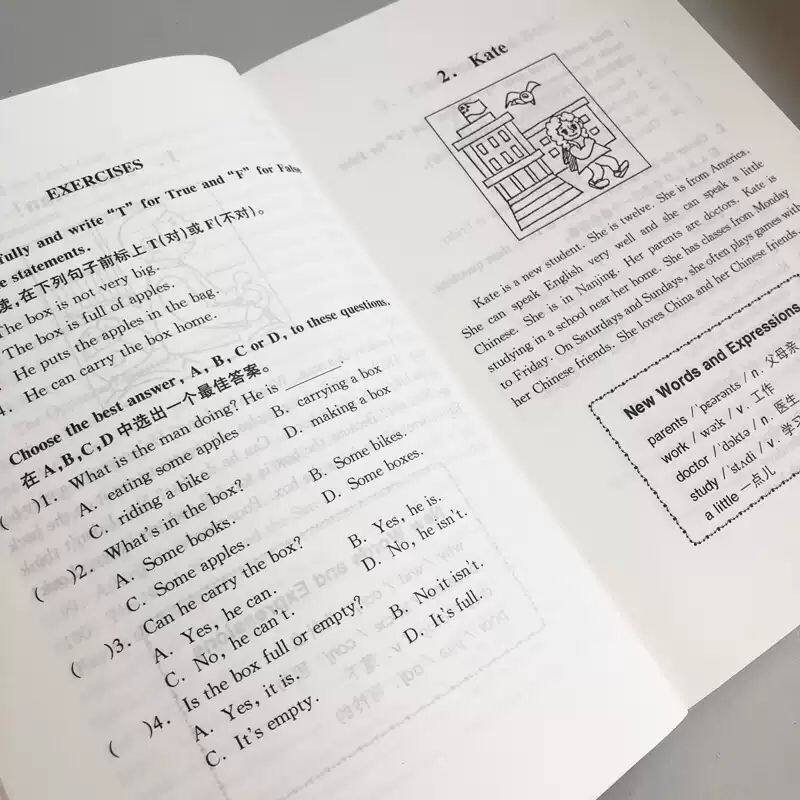 EXERCISES
fully and write “T” for True and “F” for False
e statements.
读,在下列句子前标上 T(对)或 F(不对)。
The box is not very big.
The box is full of apples.
He puts the apples in the bag.
4. He can carry the box home.
Choose the best answer, A, B, C or D, to these questions.
在 A,B,C,D 中选出一个最佳答案。
( )1. What is the man doing? He is ______.
A. eating some apples B. carrying a box
C. riding a bike D. making a box
( )2. What's in the box?
A. Some books. B. Some bikes.
C. Some apples. D. Some boxes.
( )3. Can he carry the box?
A. Yes, he can. B. Yes, he is.
C. No, he can't. D. No, he isn't.
( )4. Is the box full or empty?
A. Yes, it is. B. No it isn't.
C. It's empty. D. It's full.
2. Kate
Kate is a new student. She is twelve. She is from America.
She can speak English very well and she can speak a little
Chinese. She is in Nanjing. Her parents are doctors. Kate is
studying in a school near her home. She has classes from Monday
to Friday. On Saturdays and Sundays, she often plays games with
her Chinese friends. She loves China and her Chinese friends.
New Words and Expressions
parents /ˈpeərənts / n. 父母亲
work / wɜːk / v. 工作
doctor /ˈdɒktə / n. 医生
study /ˈstʌdi / v. 学习
a little 一点儿